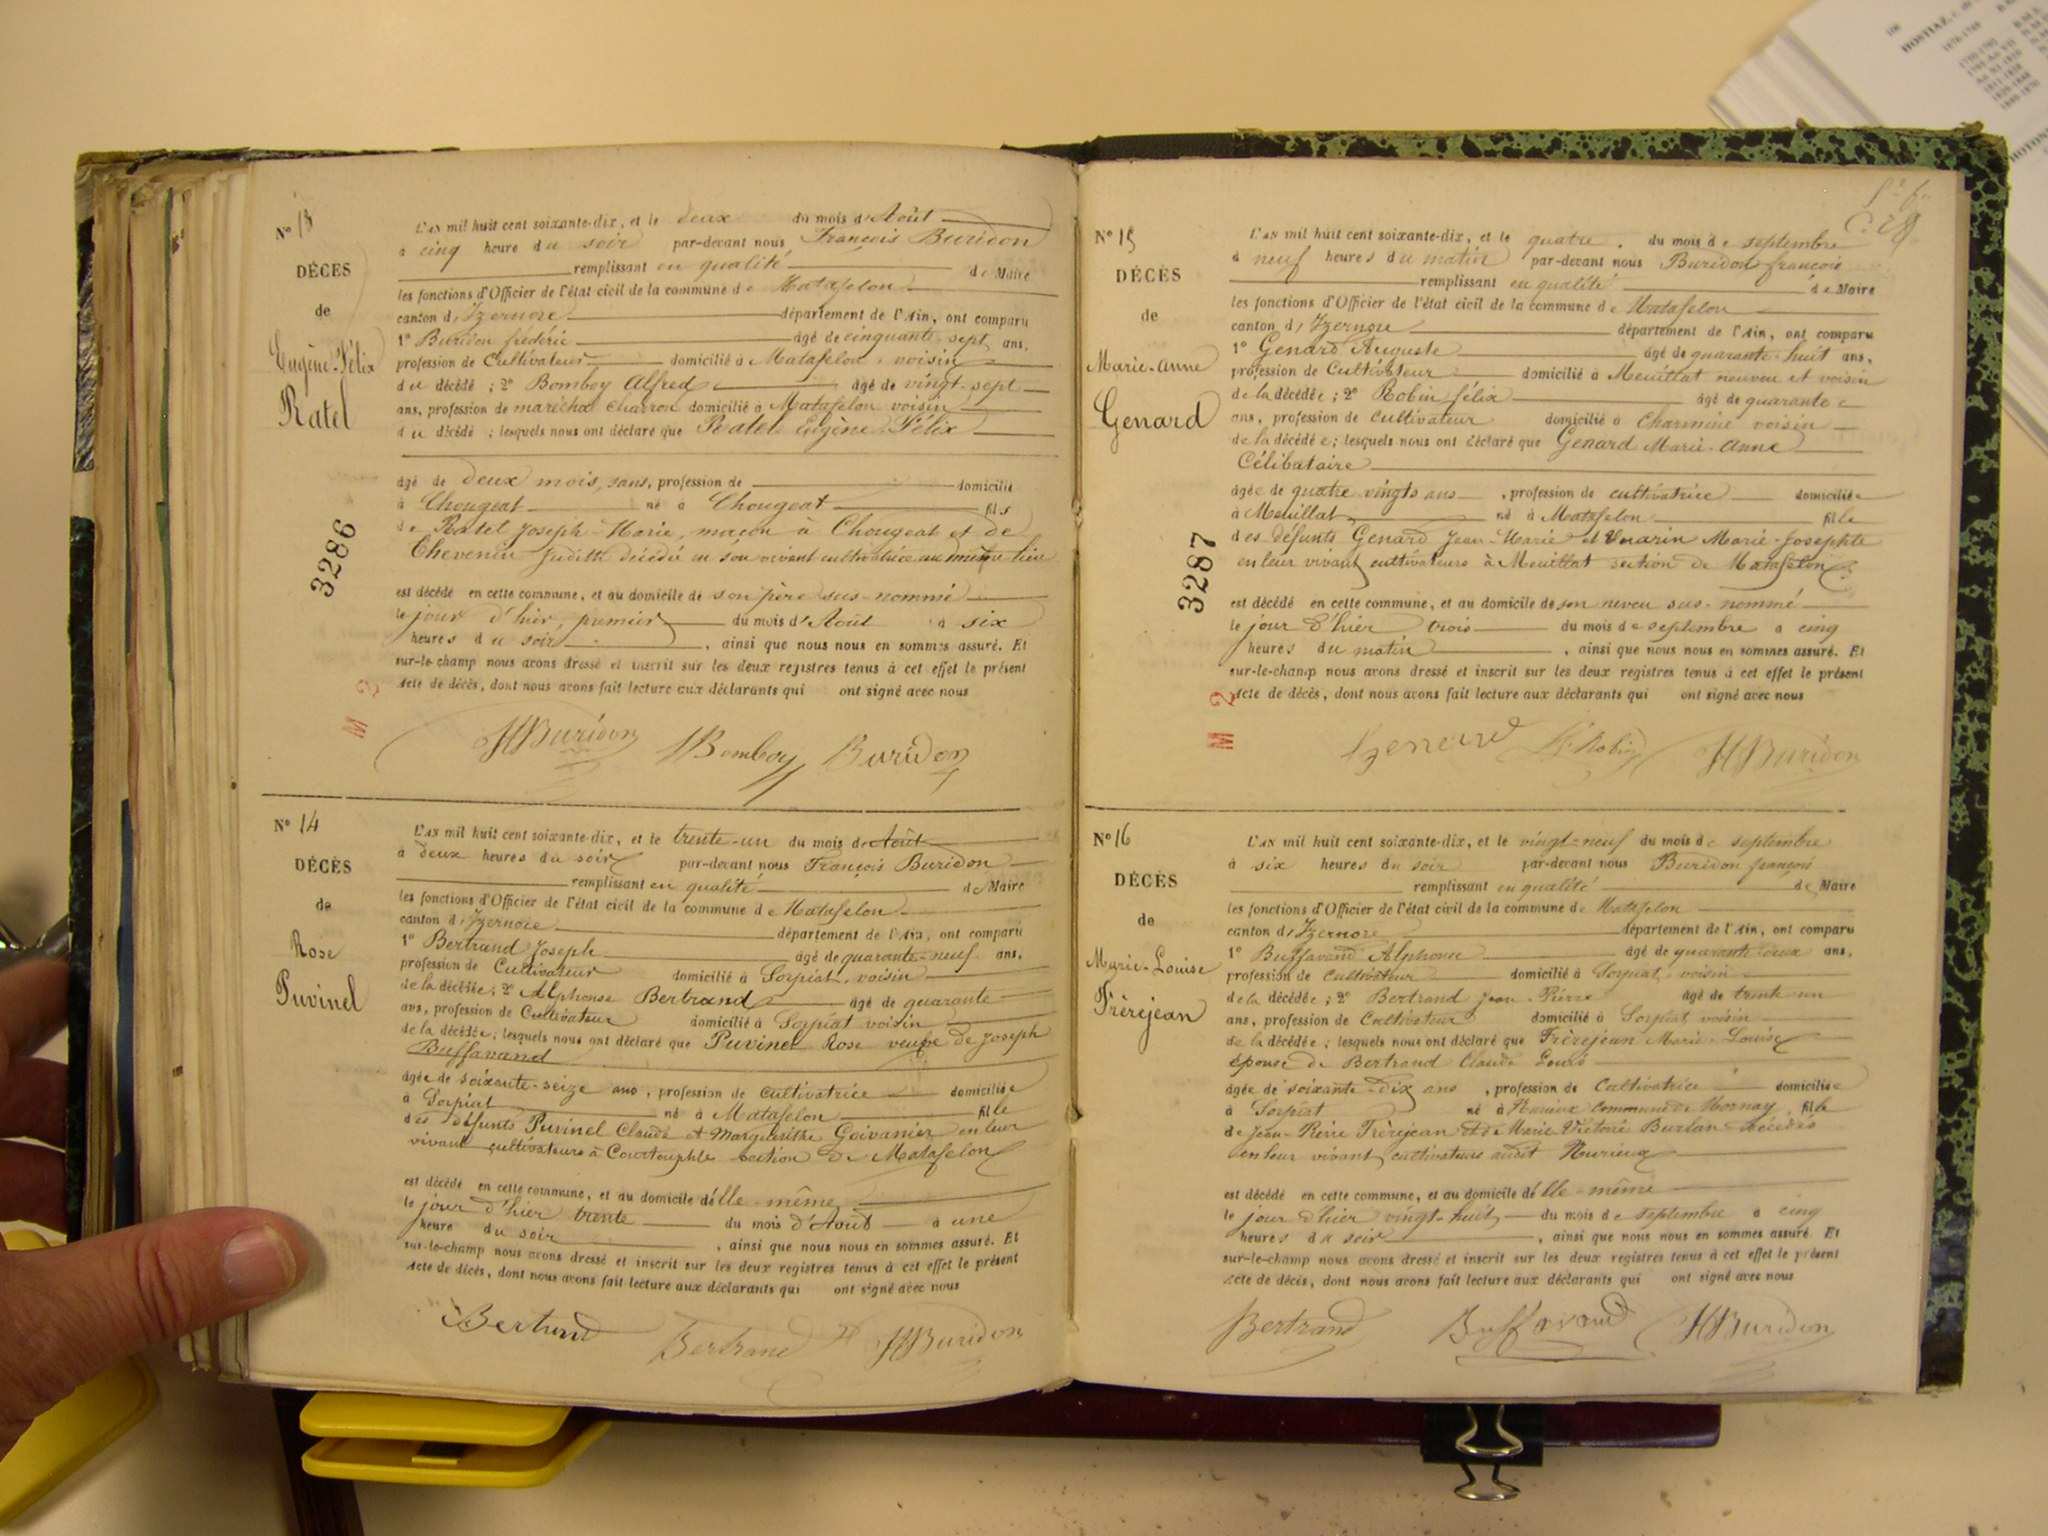 Nº 13
DÉCÈS
de
Eugène-Félix
Ratel
3286
M 2
L'AN mil huit cent soixante-dix, et le deux du mois d'Août
à cinq heure du soir par-devant nous François Buridon
remplissant en qualité de Maire
les fonctions d'Officier de l'état civil de la commune de Matafelon
canton d'Izernore département de l'Ain, ont comparu
1º Buridon frédéric âgé de cinquante-sept ans,
profession de Cultivateur domicilié à Matafelon, voisin
du décédé ; 2º Bomboy Alfred âgé de vingt-sept
ans, profession de maréchal charron domicilié à Matafelon voisin
du décédé ; lesquels nous ont déclaré que Ratel Eugène Félix
âgé de deux mois, sans, profession de domicilié
à Chougeat né à Chougeat fils
de Ratel Joseph-Marie, maçon à Chougeat et de
Chevenin Judith décédé en son vivant cultivatrice au même lieu
est décédé en cette commune, et au domicile de son père sus-nommé
le jour d'hier, premier du mois d'Août à six
heures du soir , ainsi que nous nous en sommes assuré. Et
sur-le-champ nous avons dressé et inscrit sur les deux registres tenus à cet effet le présent
acte de décès, dont nous avons fait lecture aux déclarants qui ont signé avec nous
Buridon Bomboy Buridon
Nº 14
DÉCÈS
de
Rose
Puvinel
L'AN mil huit cent soixante-dix, et le trente-un du mois de Août
à deux heures du soir par-devant nous François Buridon
remplissant en qualité de Maire
les fonctions d'Officier de l'état civil de la commune de Matafelon
canton d'Izernore département de l'Ain, ont comparu
1º Bertrand Joseph âgé de quarante-neuf ans,
profession de Cultivateur domicilié à Sorpiat, voisin
de la décédée ; 2º Alphonse Bertrand âgé de quarante
ans, profession de Cultivateur domicilié à Sorpiat voisin
de la décédée ; lesquels nous ont déclaré que Puvinel Rose veuve de Joseph
Buffavand
âgée de soixante-seize ans, profession de cultivatrice domiciliée
à Sorpiat né à Matafelon fille
des défunts Puvinel Claude et Marguerithe Goivanier en leur
vivant cultivateurs à Courtouphle section de Matafelon
est décédé en cette commune, et au domicile d'elle-même
le jour d'hier trente du mois d'Août à une
heure du soir , ainsi que nous nous en sommes assuré. Et
sur-le-champ nous avons dressé et inscrit sur les deux registres tenus à cet effet le présent
acte de décès, dont nous avons fait lecture aux déclarants qui ont signé avec nous
Bertrand Bertrand Buridon
Nº 15
DÉCÈS
de
Marie-Anne
Genard
3287
M 2
L'AN mil huit cent soixante-dix, et le quatre du mois de septembre
à neuf heures du matin par-devant nous Buridon françois
remplissant en qualité de Maire
les fonctions d'Officier de l'état civil de la commune de Matafelon
canton d'Izernore département de l'Ain, ont comparu
1º Genard Auguste âgé de quarante-huit ans,
profession de Cultivateur domicilié à Meuillat neuveu et voisin
de la décédée ; 2º Robin félix âgé de quarante
ans, profession de cultivateur domicilié à Charmine voisin
de la décédée ; lesquels nous ont déclaré que Genard Marie-Anne
Célibataire
âgée de quatre vingts ans , profession de cultivatrice domiciliée
à Meuillat né à Matafelon fille
des défunts Genard Jean-Marie et Marie-Josephte
en leur vivant cultivateurs à Meuillat section de Matafelon
est décédé en cette commune, et au domicile de son neveu sus-nommé
le jour d'hier trois du mois de septembre à cinq
heures du matin , ainsi que nous nous en sommes assuré. Et
sur-le-champ nous avons dressé et inscrit sur les deux registres tenus à cet effet le présent
acte de décès, dont nous avons fait lecture aux déclarants qui ont signé avec nous
Genard Robin Buridon
Nº 16
DÉCÈS
de
Marie-Louise
Frèrejean
L'AN mil huit cent soixante-dix, et le vingt-neuf du mois de septembre
à six heures du soir par-devant nous Buridon françois
remplissant en qualité de Maire
les fonctions d'Officier de l'état civil de la commune de Matafelon
canton d'Izernore département de l'Ain, ont comparu
1º Buffavand Alphonse âgé de quarante deux ans,
profession de cultivateur domicilié à Sorpiat, voisin
de la décédée ; 2º Bertrand Jean-Pierre âgé de trente un
ans, profession de Cultivateur domicilié à Sorpiat, voisin
de la décédée ; lesquels nous ont déclaré que Frèrejean Marie-Louise
épouse de Bertrand Claude Louis
âgée de soixante-dix ans , profession de Cultivatrice domiciliée
à Sorpiat né à Nurieux commune de Mornay, fille
de Jean-Pierre Frèrejean et de Marie Victoire Burlan décédés
en leur vivant cultivateurs audit Nurieux
est décédé en cette commune, et au domicile d'elle-même
le jour d'hier vingt-huit du mois de septembre à cinq
heures du soir , ainsi que nous nous en sommes assuré. Et
sur-le-champ nous avons dressé et inscrit sur les deux registres tenus à cet effet le présent
acte de décès, dont nous avons fait lecture aux déclarants qui ont signé avec nous
Bertrand Buffavand Buridon
HOSTIAZ